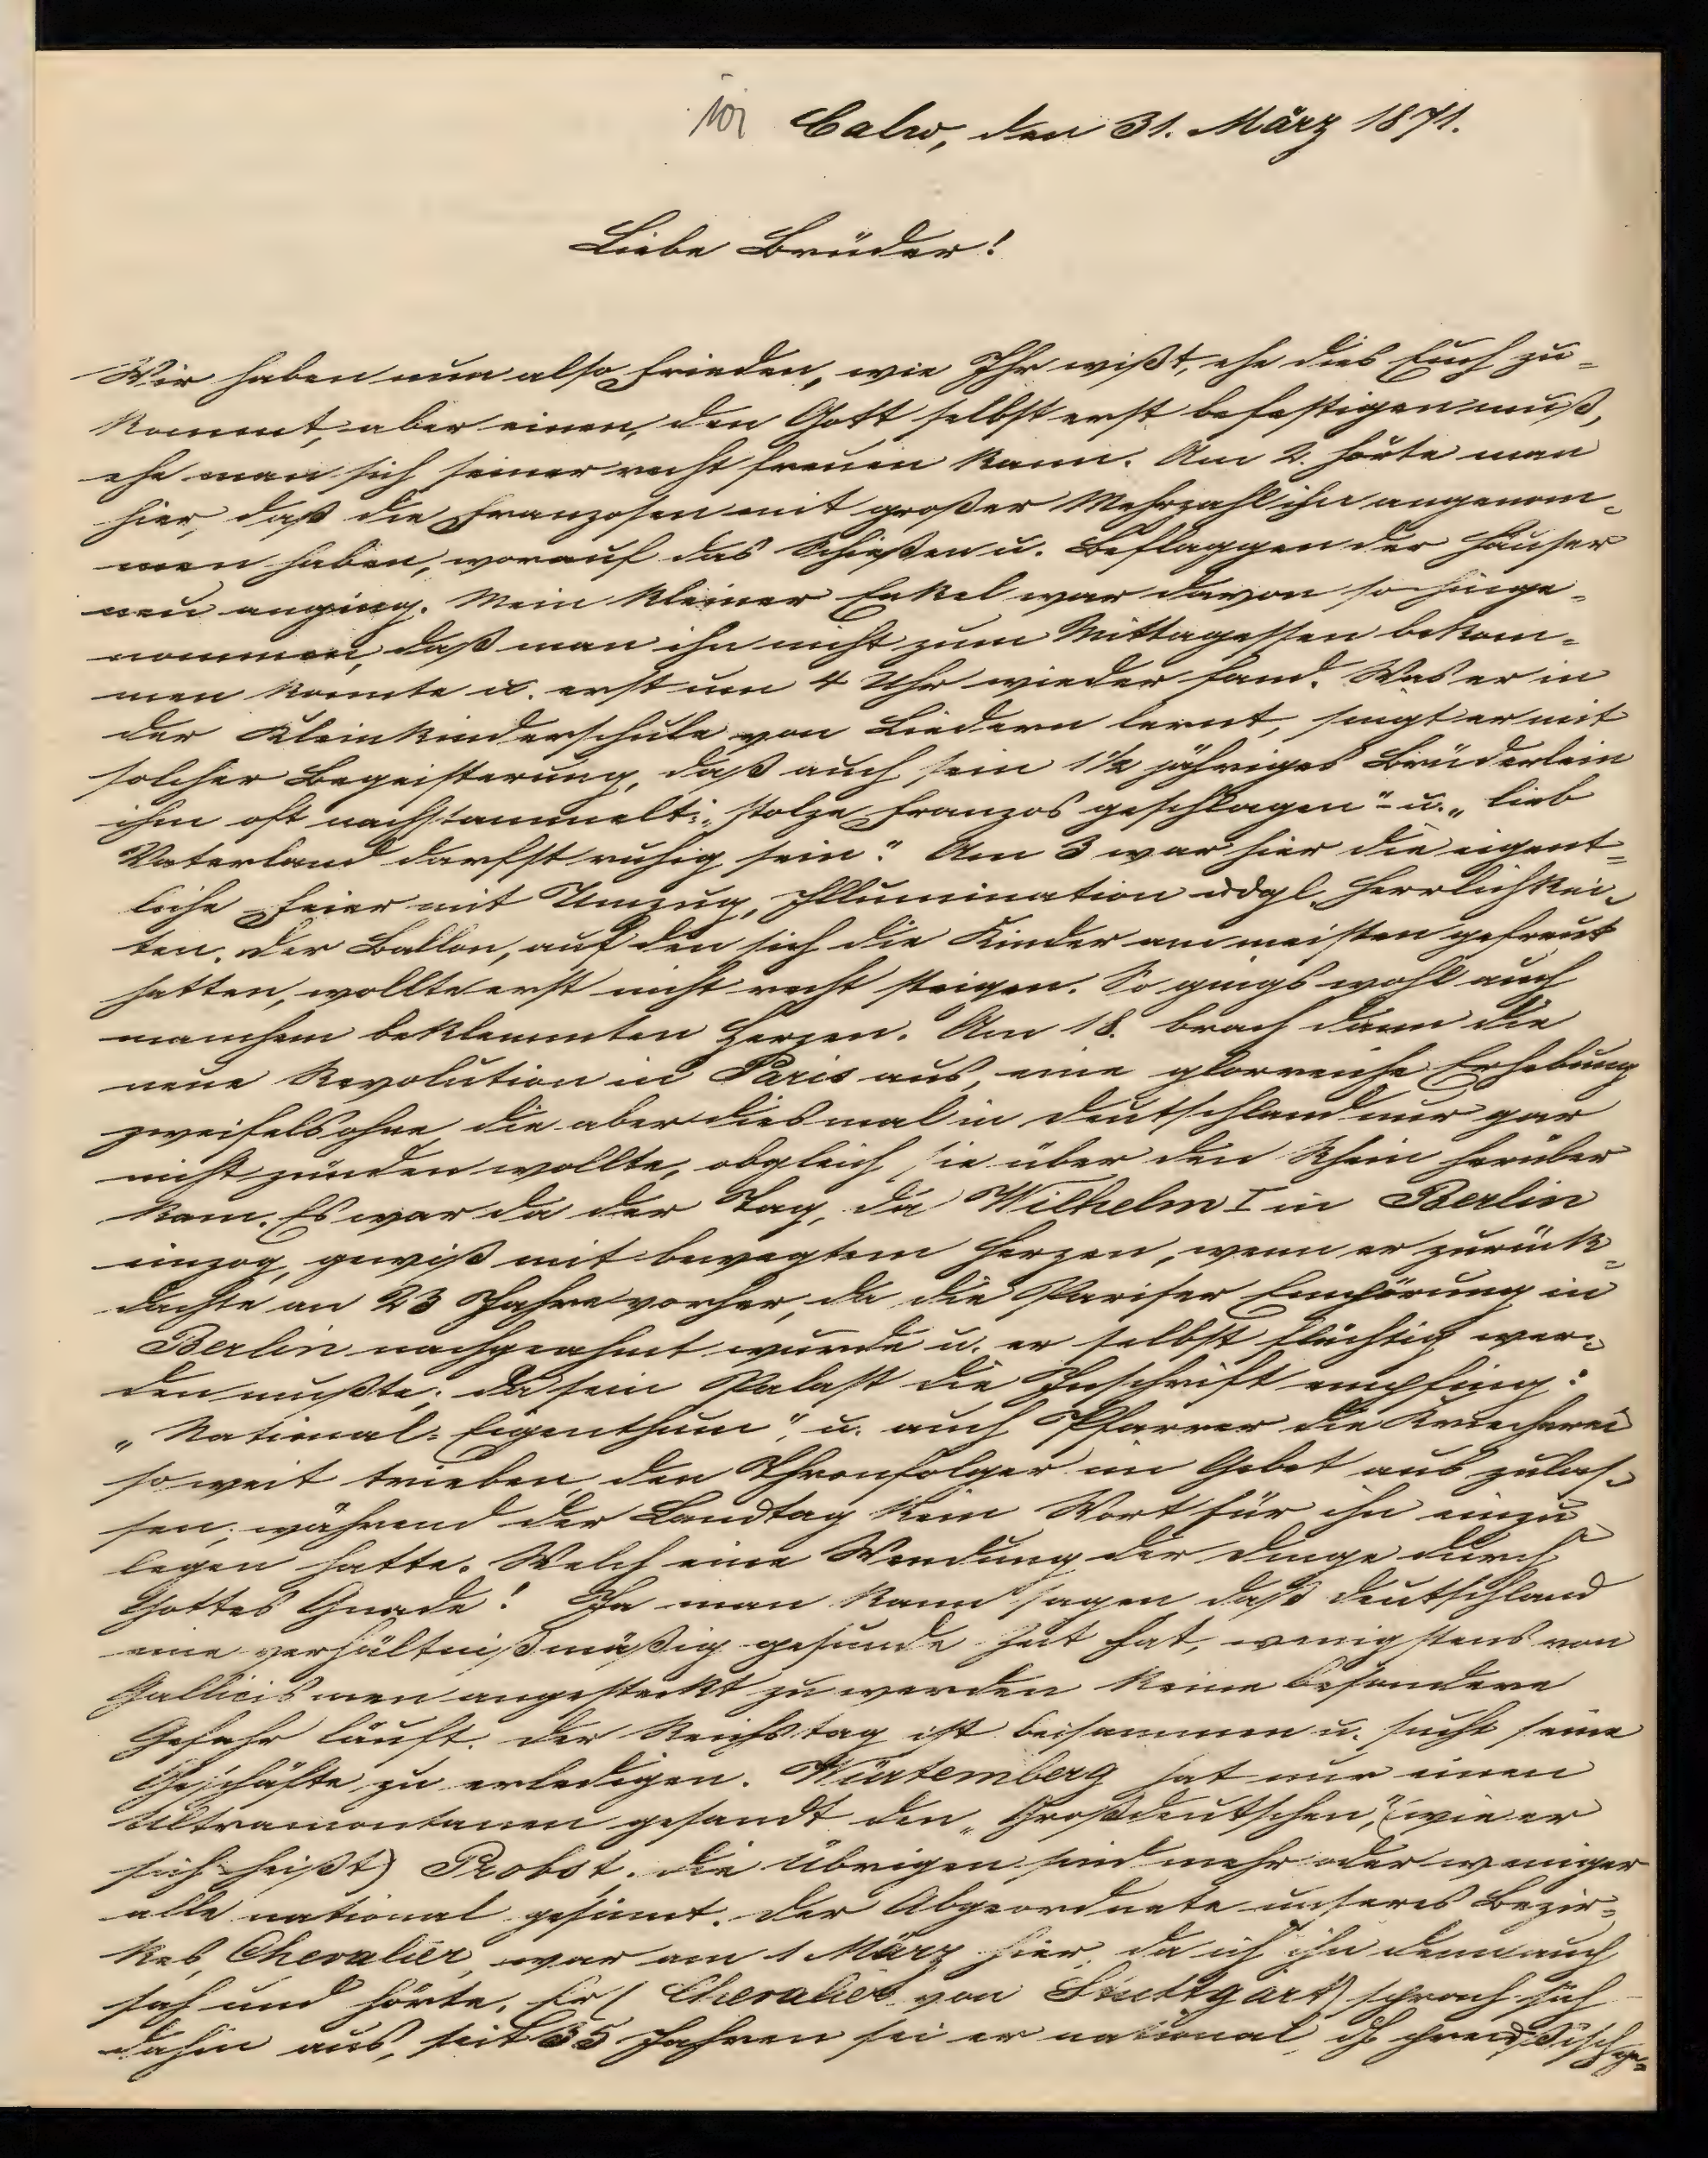 Calw, den 31. März 1871.
Liebe Brüder!
Wir haben nun also Frieden, wie Ihr wißt, ehe dies Euch zu-
kommt, aber einen, den Gott selbst erst befestigen muß,
ehe man sich seiner recht freuen kann. Am 2. hörte man
hier, daß die Franzosen mit großer Mehrzahl ihn angenom-
men haben, worauf das Schießen u. Beflaggen der Häuser
neu anging. Mein kleiner Enkel war davon so hinge-
nommen, daß man ihn nicht zum Mittagessen bekom-
men konnte u. erst um 4 Uhr wieder fand. Was er in
der Kleinkinderschule von Liedern lernt, singt er mit
solcher Begeisterung, daß auch sein 1½ jähriges Brüderlein
ihm oft nachstammelt: „stolze Franzos geschlagen" u. „lieb
Vaterland darfst ruhig sein." Am 3 war hier die eigent-
liche Feier mit Umzug, Illumination u dgl. Herrlichkei-
ten. Der Ballon, auf den sich die Kinder am meisten gefreut
hatten, wollte erst nicht recht steigen. So gings wohl auch
manchem beklemmten Herzen. Am 18. brach dann die
neue Revolution in Paris aus, eine glorreiche Erhebung
zweifelsohne, die aber diesmal in Deutschland nur gar
nicht zünden wollte, obgleich sie über den Rhein herüber
kam. Es war da der Tag, da Wilhelm I in Berlin
einzog, gewiß mit bewegtem Herzen, wenn er zurück-
dachte an 23 Jahre vorher, da die Pariser Empörung in
Berlin nachgeahmt wurde u. er selbst flüchtig wer-
den mußte, da sein Palast die Inschrift empfing:
„National-Eigenthum", u. auch Pfarrer die Kriecherei
so weit trieben, den Thronfolger im Gebet aus zulas-
sen, während der Landtag kein Wort für ihn einzu
legen hatte. Welch eine Wendung der Dinge durch
Gottes Gnade! Ja man kann sagen daß Deutschland
eine verhältnißmäßig gesunde Zeit hat, wenigstens von
Gallicismen angesteckt zu werden keine besondere
Gefahr läuft. Der Reichstag ist beisammen u. sucht seine
Geschäfte zu erledigen. Würtemberg hat nur einen
Ultramontanen gesandt den „Großdeutschen", (wie er
sich heißt) Probst. Die Übrigen sind mehr oder weniger
alle national gesinnt. Der Abgeordnete unseres Bezir-
kes, Chevalier, war am 1 März hier, da ich ihn denn auch
sah und hörte. Er (Chevalier von Stuttgart) sprach sich
dahin aus, seit 35 Jahren sei er national, dh preußisch ge-